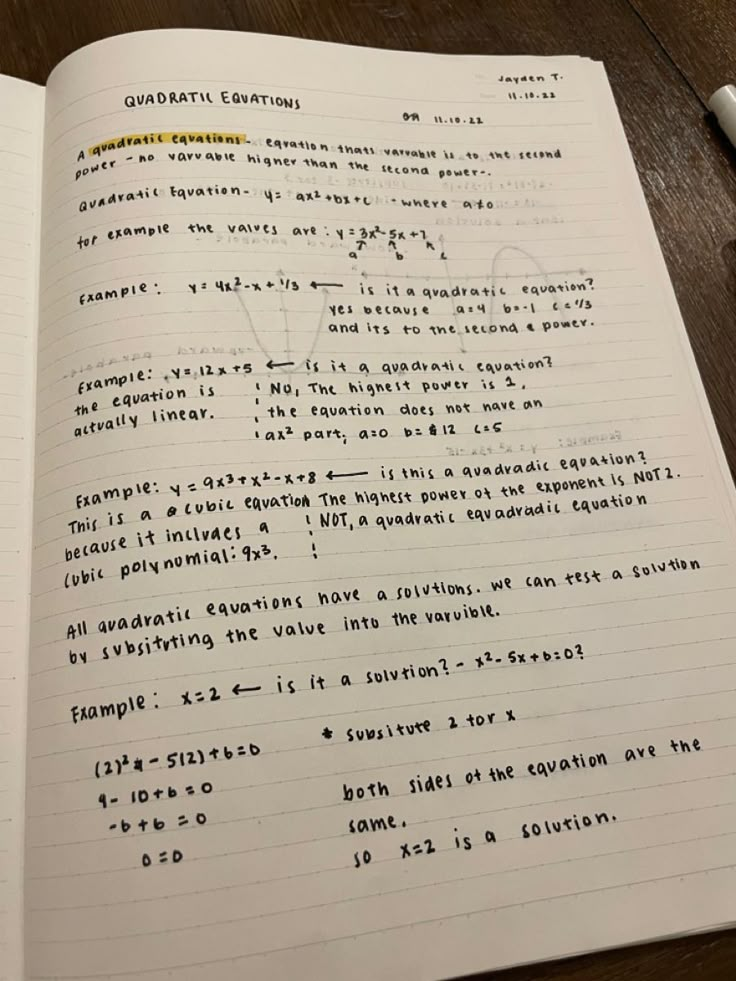 Jayden T.
11.10.22
QUADRATIC EQUATIONS
11.10.22
A quadratic equations - equation thats varvable is to the second
power - no varvable higher than the second power-.
Quadratic Equation - y = ax² + bx + c - where a≠0
for example the values are : y = 3x² - 5x + 7
a b c
Example : y = 4x² - x + 1/3 ← is it a quadratic equation?
yes because a=4 b=-1 c=1/3
and its to the second power.
Example: y = 12x +5 ← is it a quadratic equation?
the equation is NO, The highest power is 1,
actually linear. the equation does not have an
ax² part; a=0 b= 12 c=5
Example: y = 9x³ + x² - x + 8 ← is this a quadradic equation?
This is a cubic equation The highest power of the exponent is NOT 2.
because it includes a NOT, a quadratic equadradic equation
cubic polynomial: 9x³.
All quadratic equations have a solutions. we can test a solution
by subsituting the value into the varuible.
Example : x=2 ← is it a solution? - x² - 5x + 6 = 0?
(2)² - 5(2) + 6 = 0 * subsitute 2 for x
4 - 10 + 6 = 0
both sides of the equation are the
-6 + 6 = 0
same.
0 = 0
so x=2 is a solution.